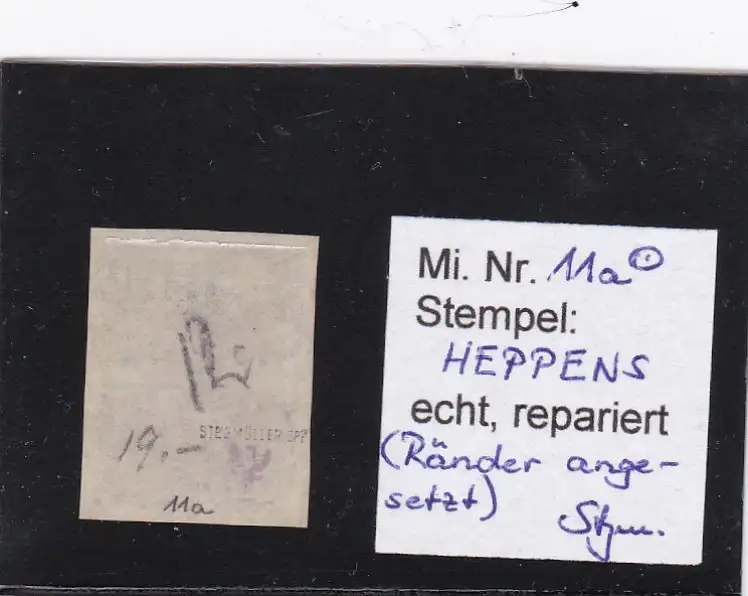 19.-
STEGMÜLLER BPP
11a
Mi. Nr. 11a
Stempel:
HEPPENS
echt, repariert
(Ränder ange-
setzt) Stgm.